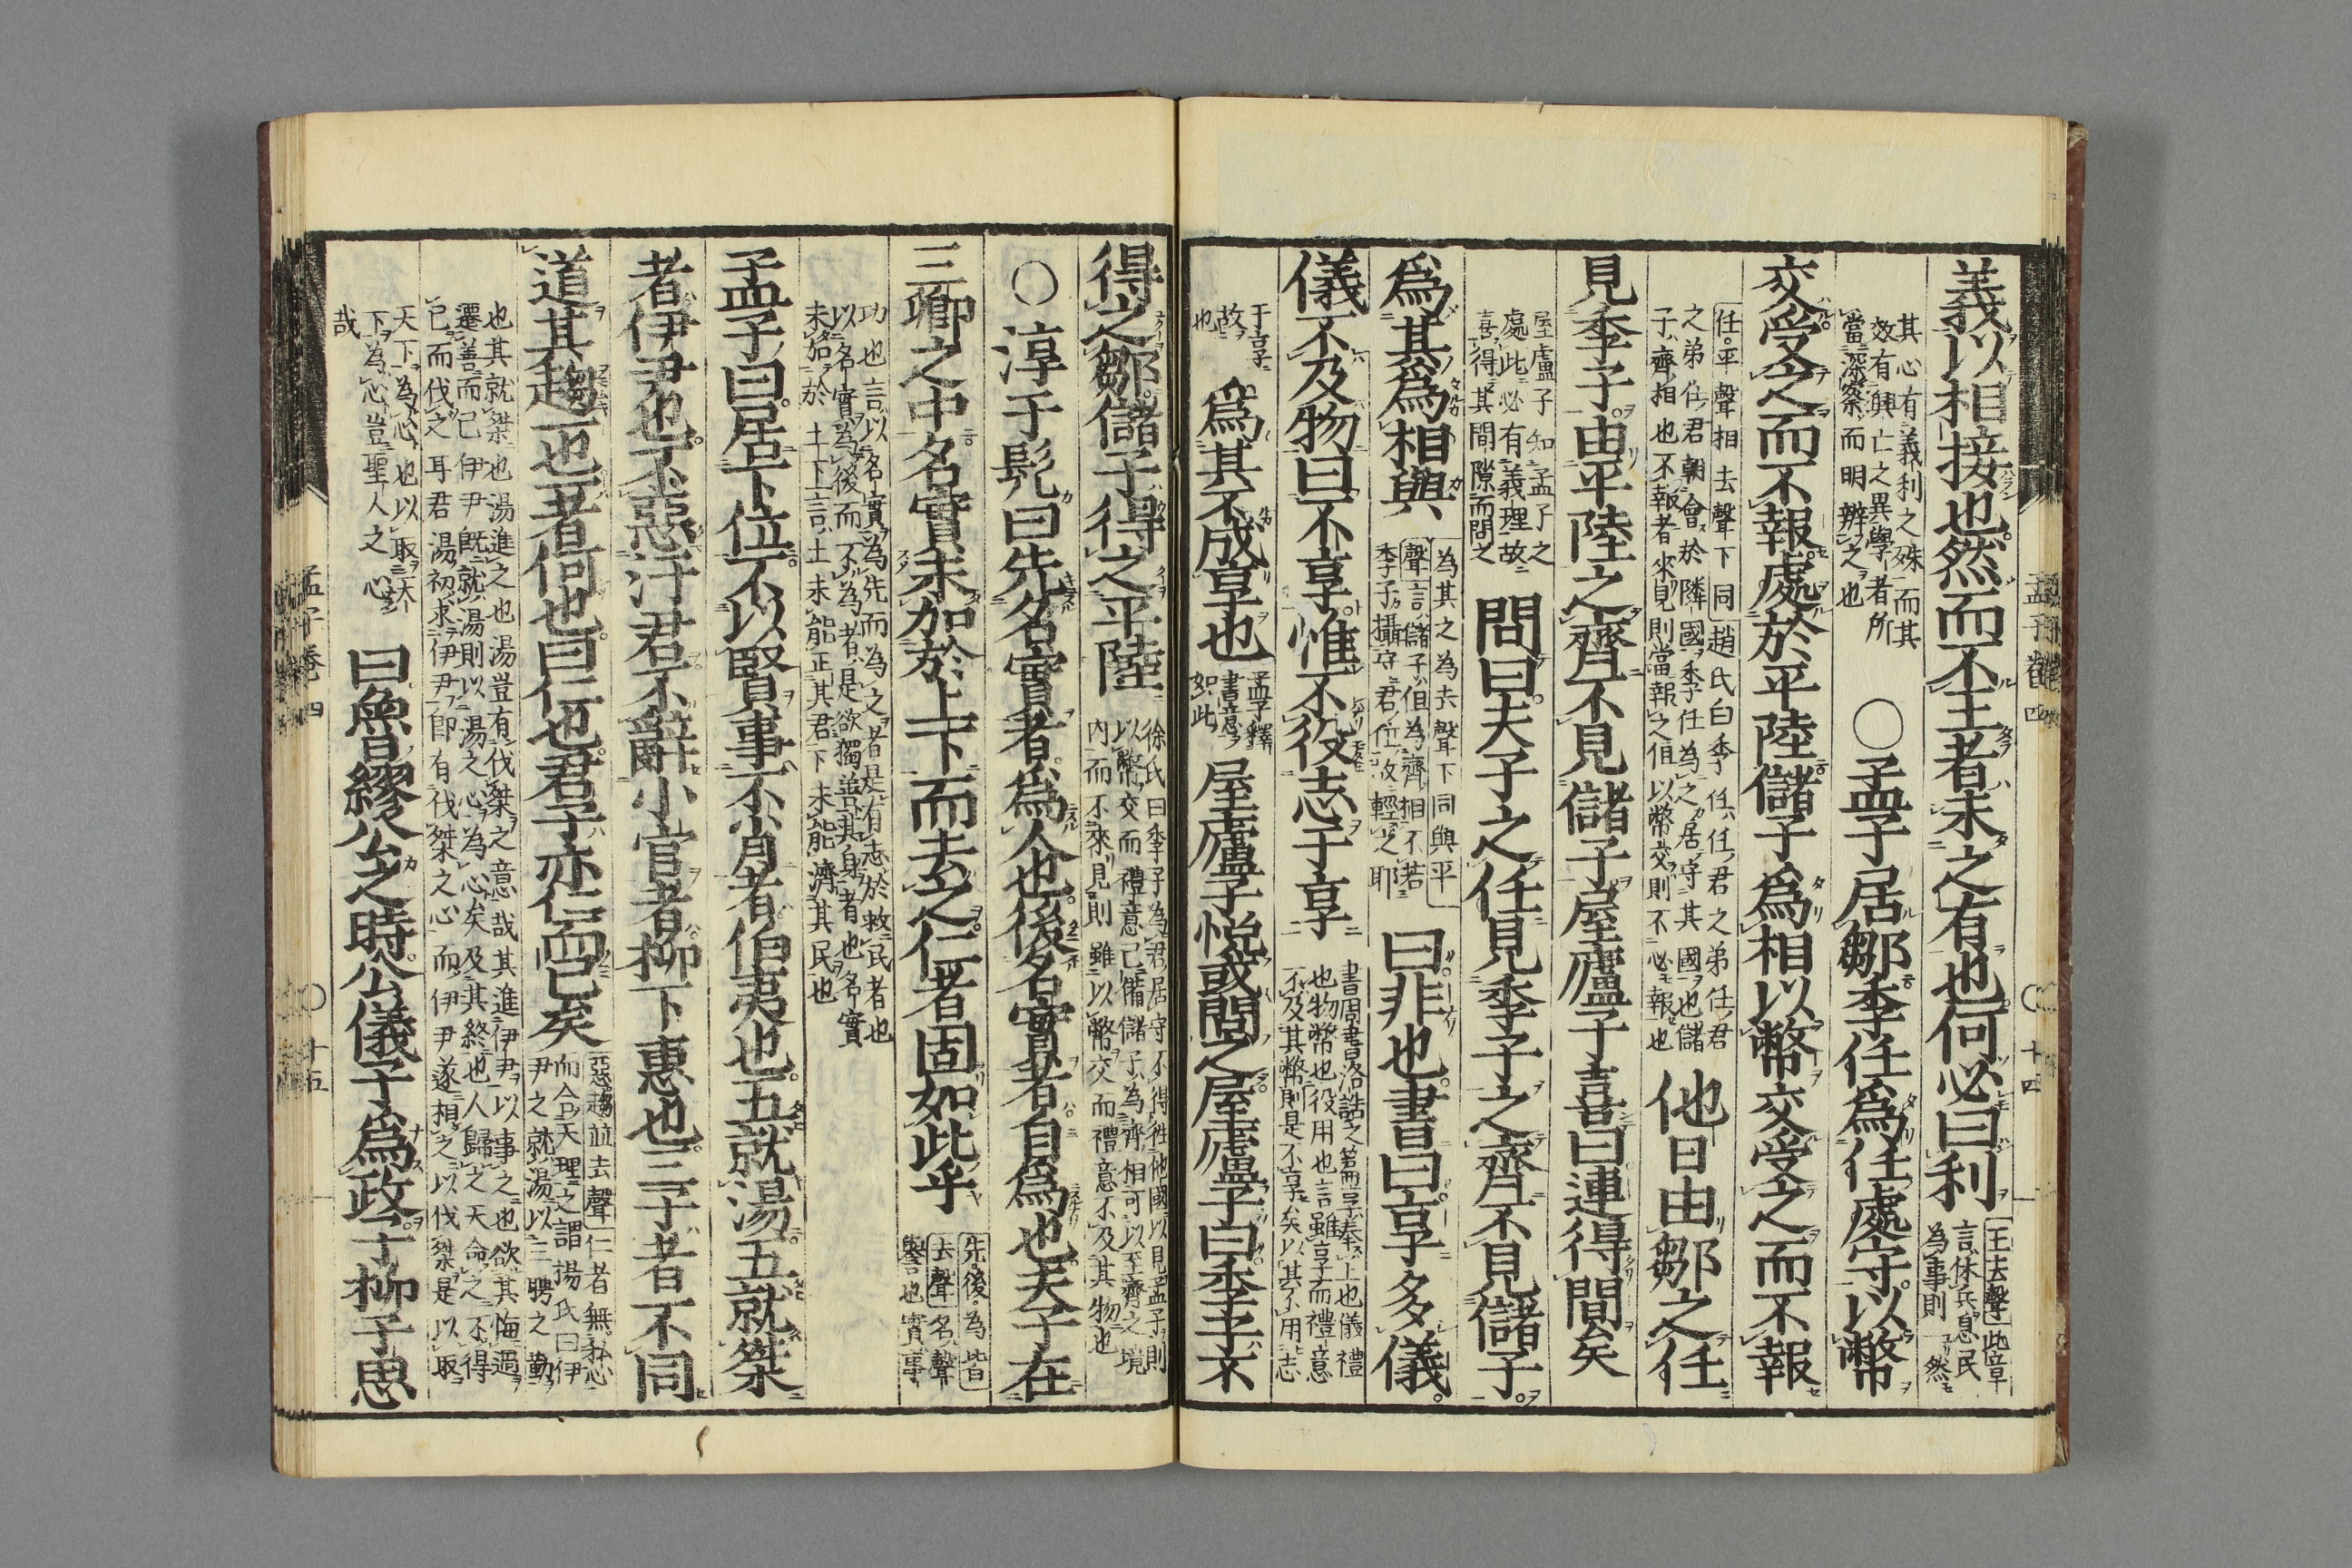 義以相接也然而不王者未之有也何必曰利
王去聲此章
言休兵息民
為事則一然
其心有義利之殊而其
效有興亡之異學者所
當深察而明辨之也
○孟子居鄒季任爲任處守以幣
交受之而不報處於平陸儲子爲相以幣交受之而不報
任平聲相去聲下同趙氏曰季任任君之弟任君
之弟任君朝會於隣國季任為之居守其國也儲
子齊相也不報者來見則當報之但以幣交則不必報也
他日由鄒之任
見季子由平陸之齊不見儲子屋廬子喜曰連得閒矣
屋廬子知孟子之
處此必有義理故
喜得其間隙而問之
問曰夫子之任見季子之齊不見儲子
爲其爲相與
為其之為去聲下同與平
聲言儲子但為齊相不若
季子攝守君位故輕之耶
曰非也書曰享多儀
儀不及物曰不享惟不役志于享
書周書洛誥之篇享奉上也儀禮
也物幣也役用也言雖享而禮意
不及其幣則是不享矣以其不用志
于享
故
也
爲其不成享也
孟子釋
書意
如此
屋廬子悅或問之屋廬子曰季子不
得之鄒儲子得之平陸
徐氏曰季子為君居守不得往他國以見孟子則
以幣交而禮意已備儲子為齊相可以至齊之境
內而不來見則雖以幣交而禮意不及其物也
○淳于髡曰先名實者爲人也後名實者自爲也夫子在
三卿之中名實未加於上下而去之仁者固如此乎
先後為皆
去聲名聲
譽也實事
功也言以名實為先而為之者是有志於救民者也
以名實為後而不為者是欲獨善其身者也名實
未加於上下言上未能正其君下未能濟其民也
孟子曰居下位不以賢事不肖者伯夷也五就湯五就桀
者伊尹也不惡汙君不辭小官者柳下惠也三子者不同
道其趨一也一者何也曰仁也君子亦仁而已矣
惡趨並去聲仁者無私心
而合天理之謂楊氏曰伊
尹之就湯以三聘之勤
也其就桀也湯進之也湯豈有伐桀之意哉其進伊尹以事之也欲其悔過
遷善而已伊尹既就湯則以湯之心為心矣及其終也人歸之天命之不得
已而伐之耳君湯初求伊尹即有伐桀之心而伊尹遂相之以伐桀是以取
天下為心也以取天
下為心豈聖人之心
哉
曰魯繆公之時公儀子爲政子柳子思
孟子卷四
十四
孟子卷四
十五